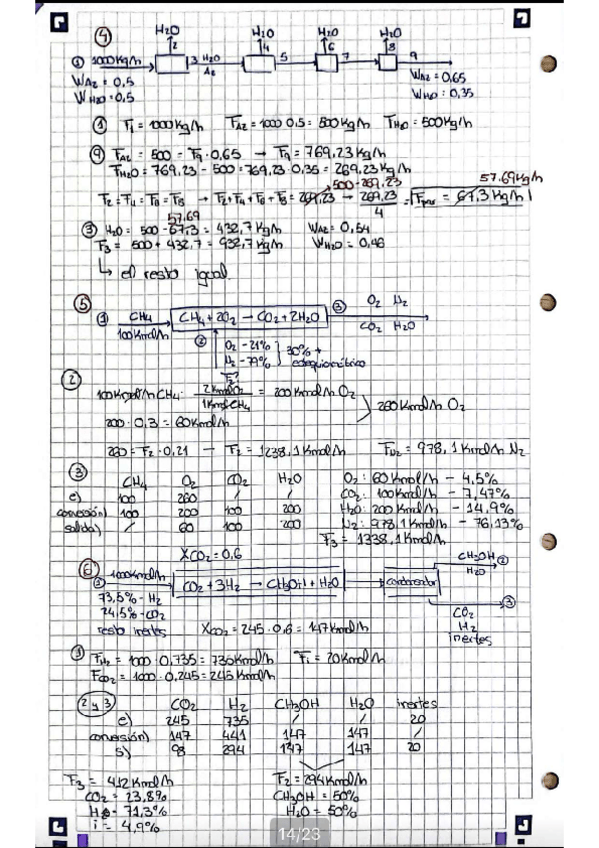 ④
H2O H2O H2O H2O
① 1000Kg/h 2 3 H2O Az 4 5 6 7 8 9
WAZ = 0,5 WAZ = 0,65
WH2O = 0,5 WH2O = 0,35
① F1 = 1000Kg/h FAZ = 1000·0,5 = 500Kg/h FH2O = 500Kg/h
⑨ FAZ = 500 = F9·0,65 → F9 = 769,23Kg/h
FH2O = 769,23 - 500 = 769,23·0,35 = 269,23Kg/h
500-269,23 57.69Kg/h
F2 = F4 = F6 = F8 → F2+F4+F6+F8 = 269,23 → 269,23/4 = = 67,3 Kg/h
57,69
③ H2O = 500 - 67,3 = 432,7Kg/h WAZ = 0,54
F3 = 500 + 432,7 = 932,7Kg/h WH2O = 0,46
↳ el resto igual
⑤
① CH4 100Kmol/h CH4 + 2O2 → CO2 + 2H2O ③ O2 N2
CO2 H2O
② O2 - 21% N2 - 79% } 30% + estequiométrico
F2?
②
100Kmol/h CH4 · 2Kmol O2/1Kmol CH4 = 200Kmol/h O2
200·0,3 = 60Kmol/h 260Kmol/h O2
260 = F2·0,21 → F2 = 1238,1Kmol/h FN2 = 978,1Kmol/h N2
③ CH4 O2 CO2 H2O O2: 60Kmol/h - 4,5%
e) 100 260 / / CO2: 100Kmol/h - 7,47%
conversión) 100 200 100 200 H2O: 200Kmol/h - 14,9%
salida) / 60 100 200 N2: 978,1Kmol/h - 76,13%
F3 = 1338,1Kmol/h
⑥ XCO2 = 0,6
① 1000Kmol/h CO2 + 3H2 → CH3OH + H2O condensador CH3OH ②
H2O
73,5% - H2
24,5% - CO2
resto inertes XCO2 = 245·0,6 = 147Kmol/h
CO2 ③
H2
inertes
① FH2 = 1000·0,735 = 735Kmol/h Fi = 20Kmol/h
FCO2 = 1000·0,245 = 245Kmol/h
2 y 3 CO2 H2 CH3OH H2O inertes
e) 245 735 / / 20
conversión) 147 441 147 147 /
s) 98 294 147 147 20
F3 = 412Kmol/h F2 = 294Kmol/h
CO2 = 23,8% CH3OH = 50%
H2 = 71,3% H2O = 50%
i = 4,9%
14/23